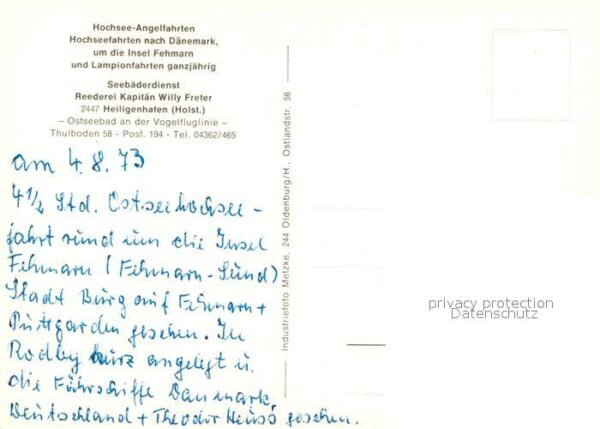 Hochsee-Angelfahrten
Hochseefahrten nach Dänemark,
um die Insel Fehmarn
und Lampionfahrten ganzjährig
Seebäderdienst
Reederei Kapitän Willy Freter
2447 Heiligenhafen (Holst.)
– Ostseebad an der Vogelfluglinie –
Thulboden 58 - Posf. 194 - Tel. 04362/465
am 4.8.73
4 1/2 Std. Ostseehochsee-
fahrt rund um die Insel
Fehmarn (Fehmarn-Sund)
Stadt Burg auf Fehmarn +
Puttgarden gesehen. In
Rodby kurz angelegt u.
die Fährschiffe Danmark,
Deutschland + Theodor Heuss gesehen.
Industriefoto Metzke, 244 Oldenburg/H., Ostlandstr. 56
privacy protection
Datenschutz